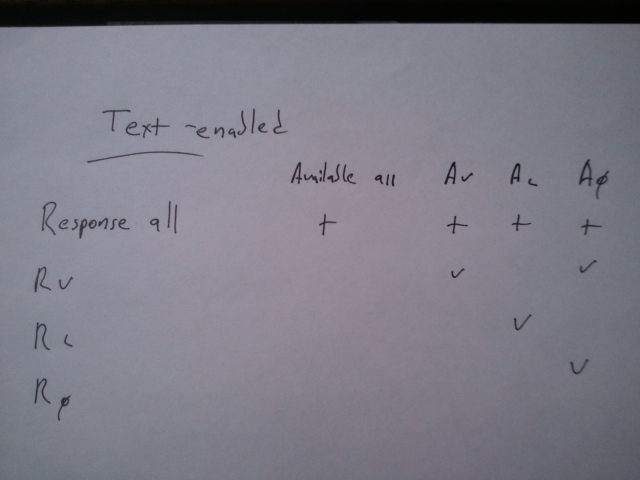 Text-enabled
Available all Av Ac Aø
Response all + + + +
Rv ✓ ✓
Rc ✓
Rø ✓